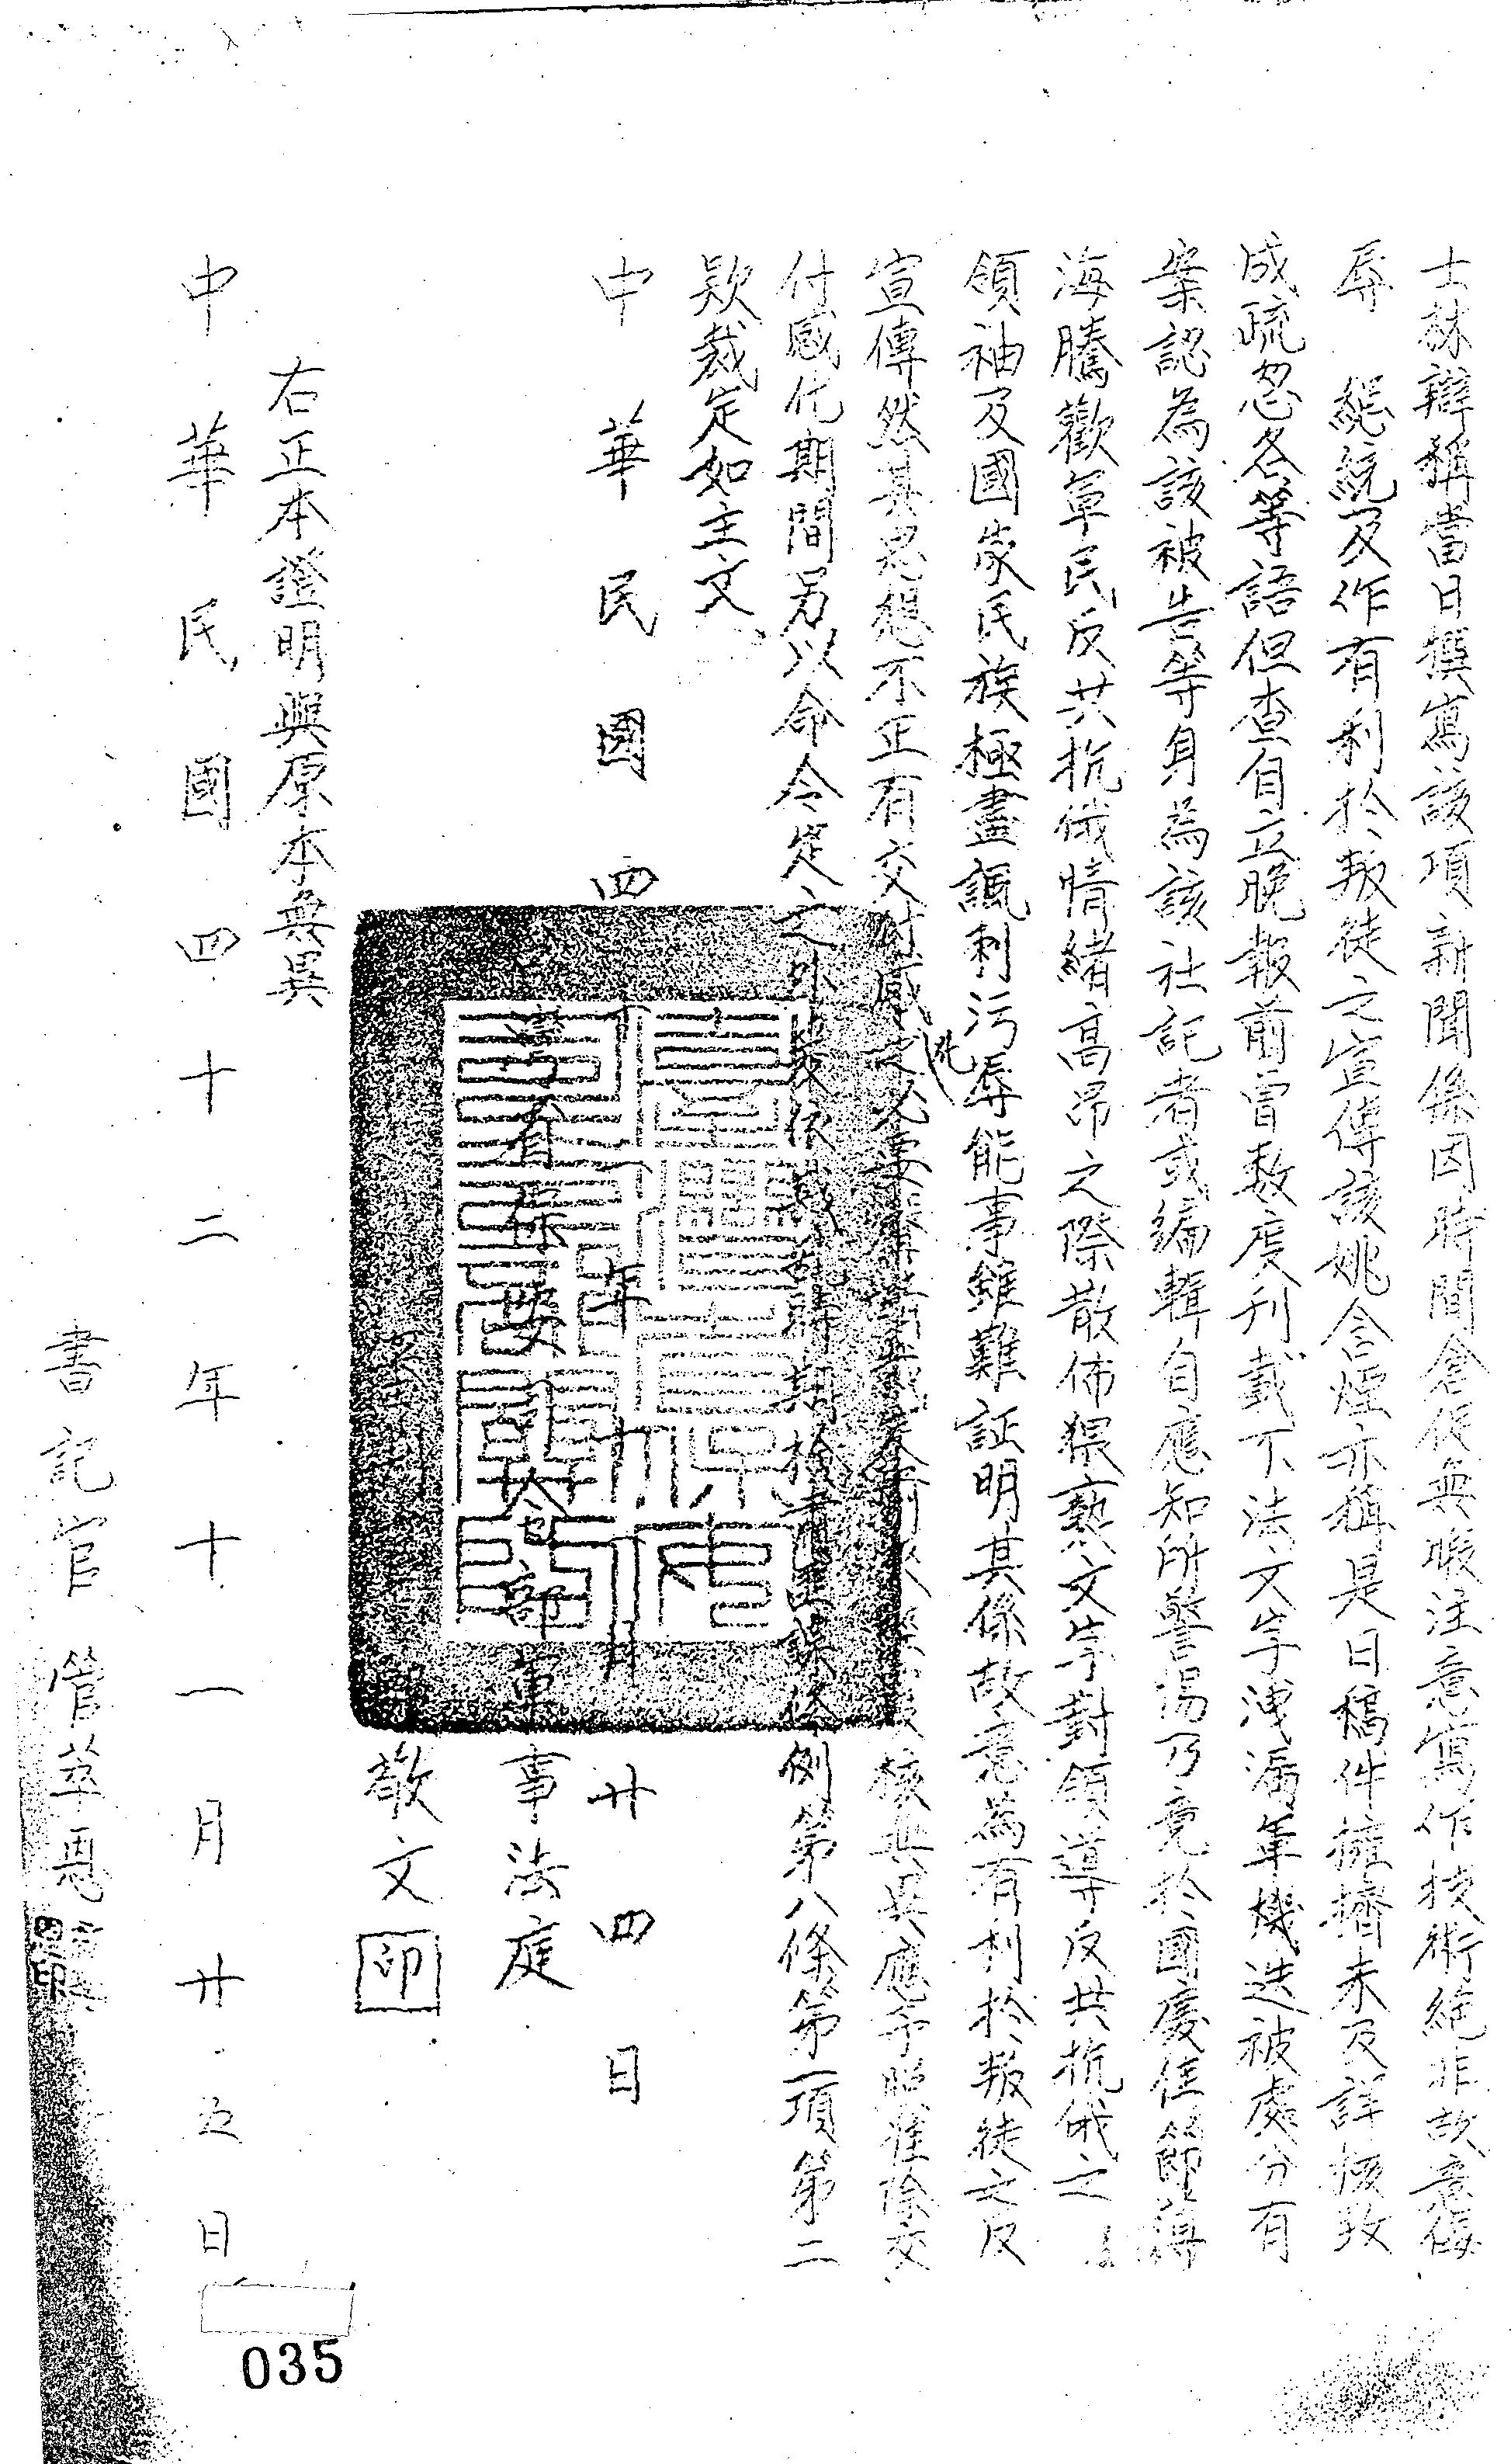 士林辯稱當日撰寫該項新聞係因時間倉促無暇注意寫作技術絕非故意侮
辱　總統及作有利於叛徒之宣傳該姚含煙亦稱是日稿件擁擠未及詳核致
成疏忽各等語但查自立晚報前曾數度刊載不法文字洩漏軍機迭被處分有
案認為該被告等身為該社記者或編輯自應知所警惕乃竟於國慶佳節薄
海騰歡軍民反共抗俄情緒高昂之際散佈猥褻文字對領導反共抗俄之
領袖及國家民族極盡諷刺污辱能事雖難証明其係故意為有利於叛徒之反
宣傳然其思想不正有交付感化之必要核無異應予照准除交
付感化期間另以命令定之外爰依戡亂時期檢肅匪諜條例第八條第一項第二
款裁定如主文
中華民國四　年十　月廿四日
臺灣省保安司令部軍事法庭
敬文印
右正本證明與原本無異
中華民國四十二年十一月廿五日
書記官　管萃
035